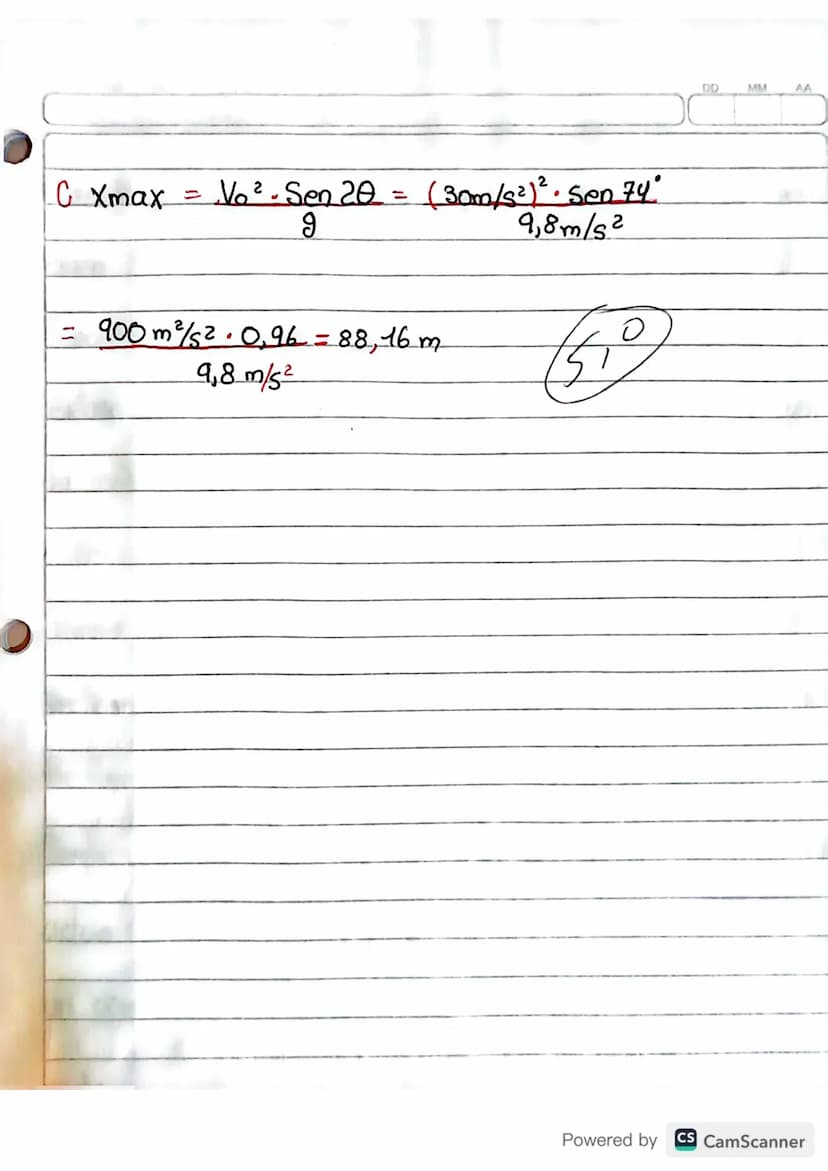 DD MM AA
C Xmax = Vo² · Sen 2θ = (30m/s²)² · Sen 74°
g 9,8m/s²
= 900 m²/s² · 0,96 = 88,16 m
9,8 m/s²
5,0
Powered by CS CamScanner